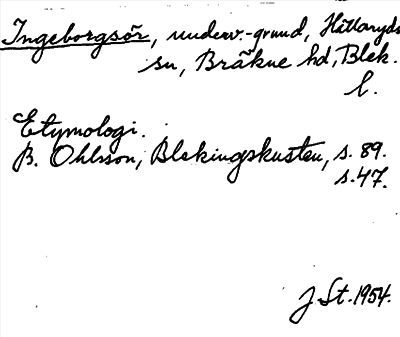 Ingeborgsör, underv.-grund, Hällaryds
sn, Bräkne hd, Blek.
l.
Etymologi.
B. Ohlsson, Blekingskusten, s. 89.
s. 47.
J St. 1954.